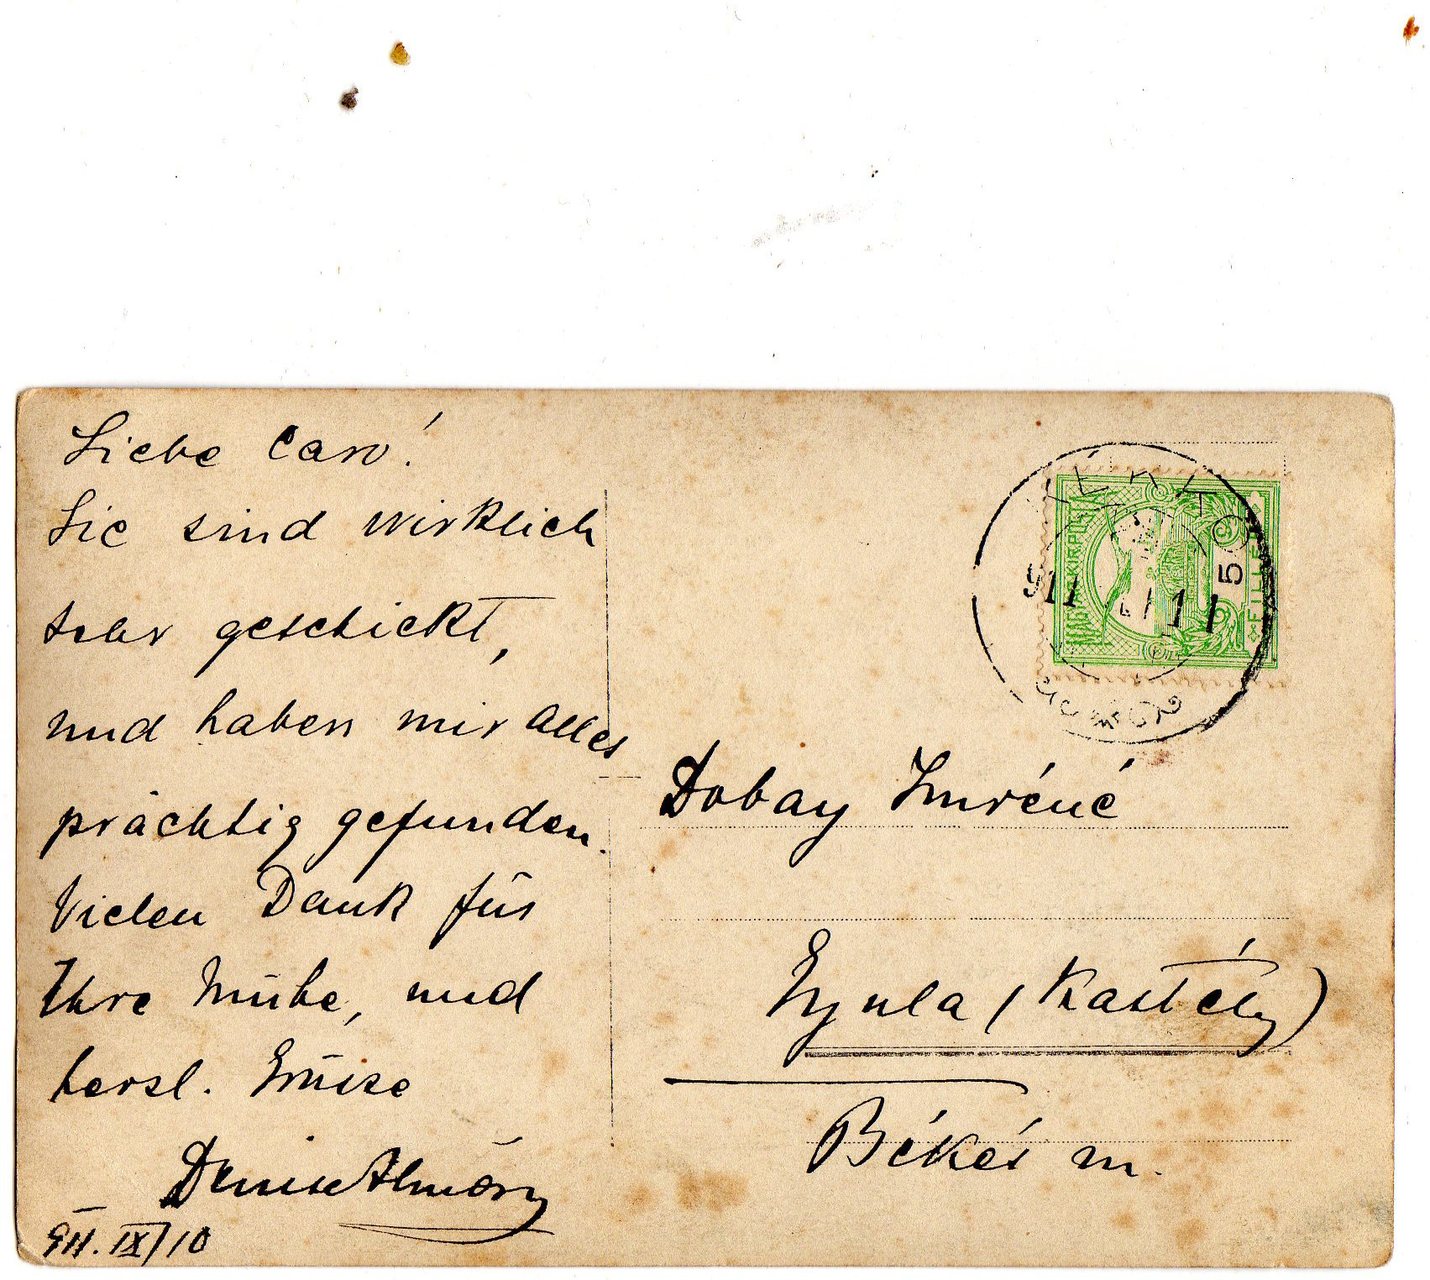 Liebe Caro!
Sie sind wirklich
sehr geschickt,
und haben mir alles
prächtig gefunden.
Vielen Dank für
Ihre Mühe, und
herzl. Grüsse
Denise Almásy
911. IX/10
5
FILLÉR
911
11
Dobay Imréné
Gyula (Kastély)
Békés m.